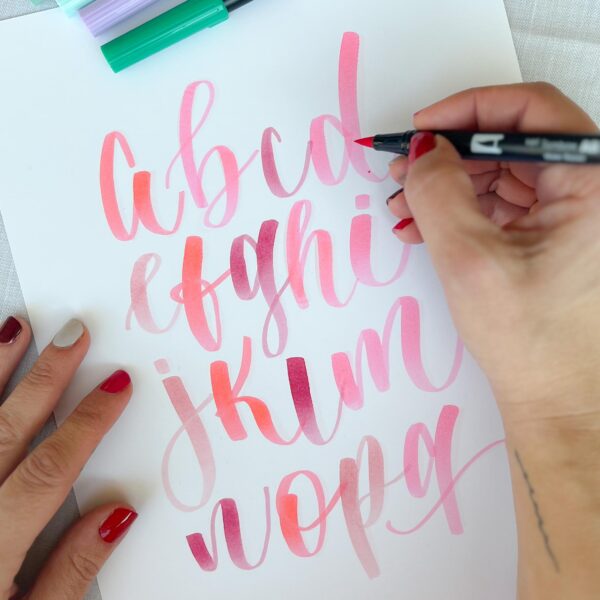 abcd
efghi
jklm
nopq
A